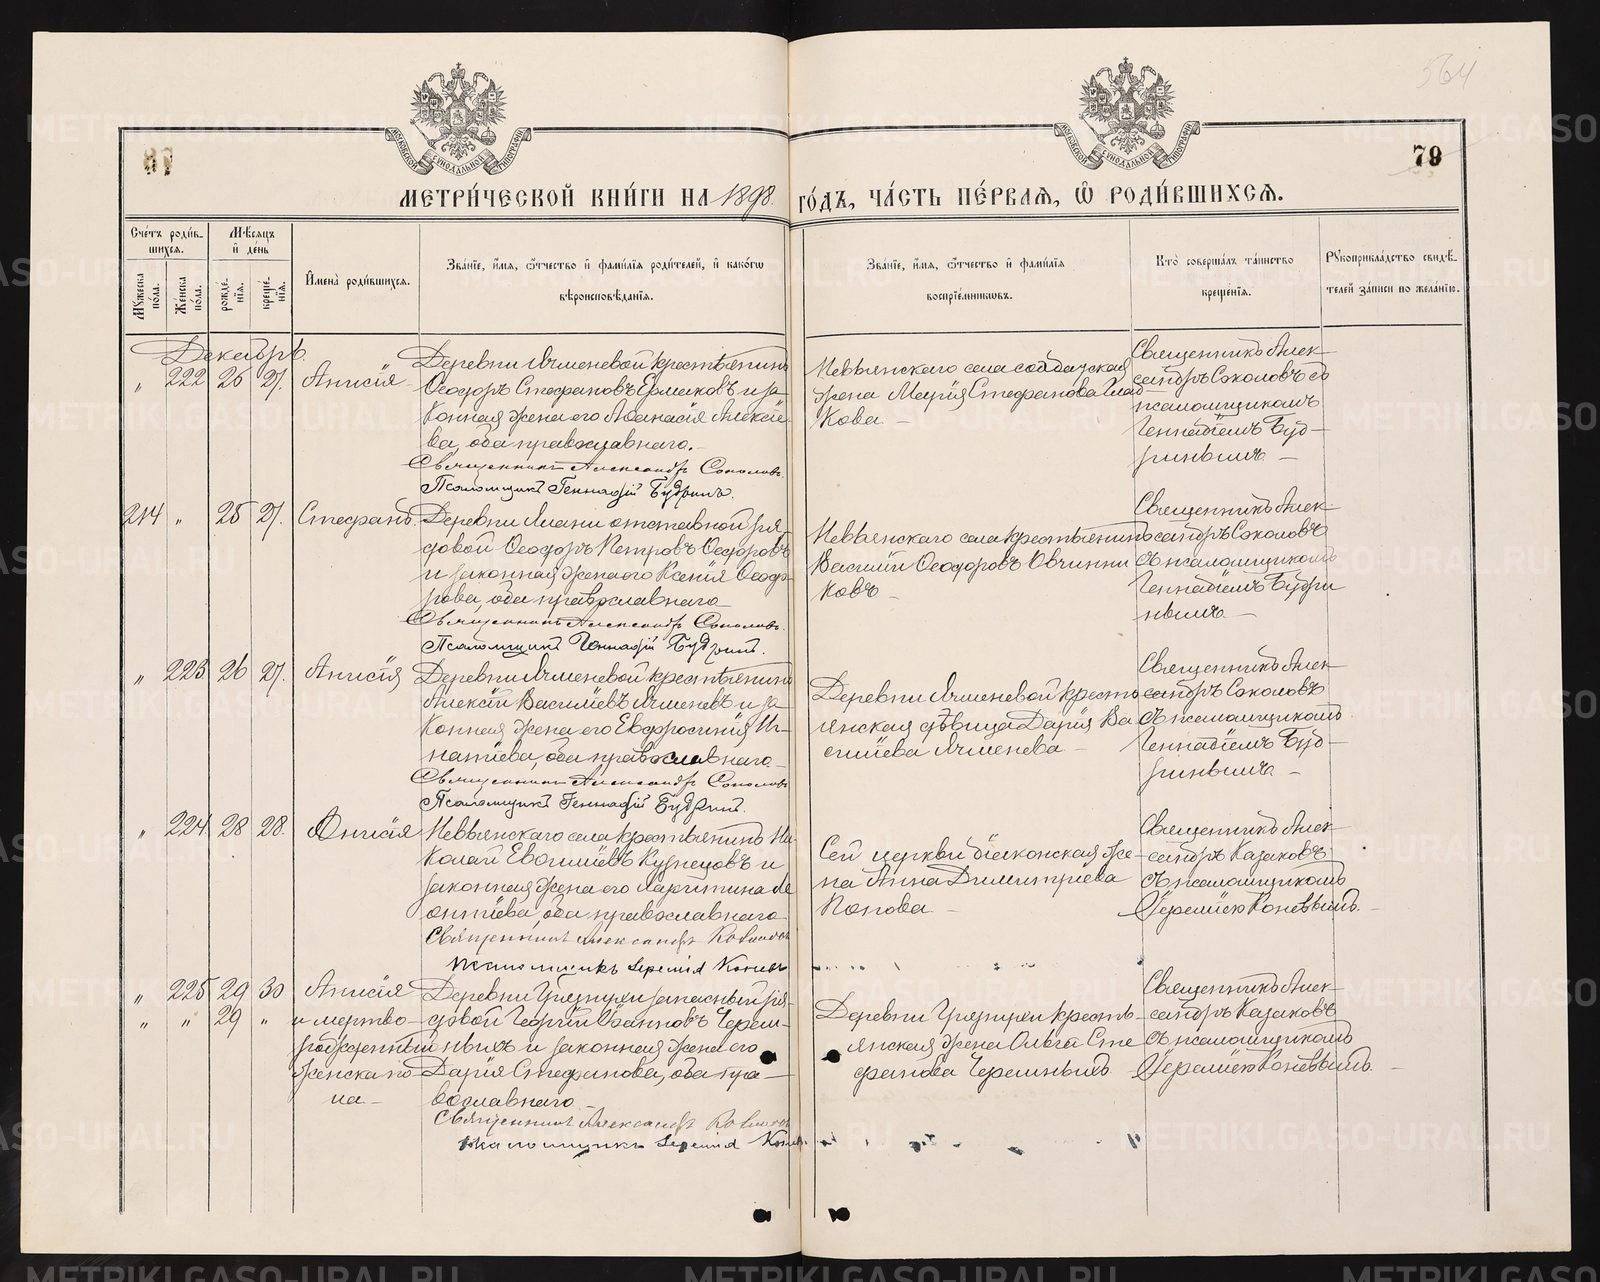 564
87
79
МЕТРИ́ЧЕСКОЙ КНИ́ГИ НА 1898 ГО́ДЪ, ЧА́СТЬ ПЕ́РВАѦ, Ѡ РОДИ́ВШИХСѦ.
Сче́тъ роди́в-
шихсѧ.
Мѣ́сѧцъ
и҆ де́нь
Мꙋ́жеска по́ла.
Же́нска по́ла.
рожде́-
нїѧ.
креще́-
нїѧ.
И҆мена̀ роди́вшихсѧ.
Зва́нїе, и҆́мѧ, ѻ҆́тчество и҆ фами́лїѧ роди́телей, и҆ како́гѡ
вѣроисповѣ́данїѧ.
Зва́нїе, и҆́мѧ, ѻ҆́тчество и҆ фами́лїѧ
воспрїе́мниковъ.
Кто̀ соверша́лъ та́инство
креще́нїѧ.
Рꙋкоприкла́дство свидѣ́-
телей за́писи по жела́нїю.
Декабрь.
„ 222 26 27. Анисія
Деревни Ячменевой крестьянинъ
Ѳеодоръ Стефановъ Ермаковъ и за-
конная жена его Аѳанасія Алексіе-
ва, оба православнаго.
Священникъ Александръ Соколовъ
Псаломщикъ Геннадій Будринъ.
Невьянскаго села солдатская
жена Марія Стефанова
кова.
Священникъ Алек-
сандръ Соколовъ съ
псаломщикомъ
Геннадіемъ Буд-
ринымъ
214 „ 25 27. Стефанъ.
Деревни отставной ря-
довой Ѳеодоръ Петровъ Ѳедоровъ
и законная жена его Ксенія Ѳеодо-
рова, оба православнаго
Священникъ Александръ Соколовъ.
Псаломщикъ Геннадій Будринъ.
Невьянскаго села крестьянинъ
Василій Ѳеодоровъ Овчинни
ковъ
Священникъ Алек-
сандръ Соколовъ
съ псаломщикомъ
Геннадіемъ Будри
нымъ
„ 223 26 27. Анисія
Деревни Ячменевой крестьянинъ
Алексій Василіевъ Ячменевъ и за-
конная жена его Евфросинія Иг-
натіева, оба православнаго
Священникъ Александръ Соколовъ
Псаломщикъ Геннадій Будринъ.
Деревни Ячменевой кресть
янская дѣвица Дарія Ва
силіева Ячменева
Священникъ Алек-
сандръ Соколовъ
съ псаломщикомъ
Геннадіемъ Буд-
ринымъ
„ 224 28 28. Анисія
Невьянскаго села крестьянинъ Ни-
колай Евѳиміевъ Кузнецовъ и
законная жена его Харитина Ле
онтіева, оба православнаго
Священникъ Александръ Казаковъ
Псаломщикъ Іеремія Коневъ
Сей церкви діаконская же-
на Анна Димитріева
Попова.
Священникъ Алек
сандръ Казаковъ
съ псаломщикомъ
Іереміею Коневымъ.
„ 225 29 30 Анисія
„ „ 29 „ и мертво-
рожденный
женска по-
ла
Деревни запасный ря-
довой Георгій Іоанновъ Черем-
ныхъ и законная жена его
Дарія Стефанова, оба пра-
вославнаго
Священникъ Александръ Казаковъ
Псаломщикъ Іеремія Коневъ
Деревни кресть-
янская жена Ольга Сте
фанова Черемныхъ
Священникъ Алек-
сандръ Казаковъ
съ псаломщикомъ
Іереміею Коневымъ.
METRIKI.GASO-URAL.RU